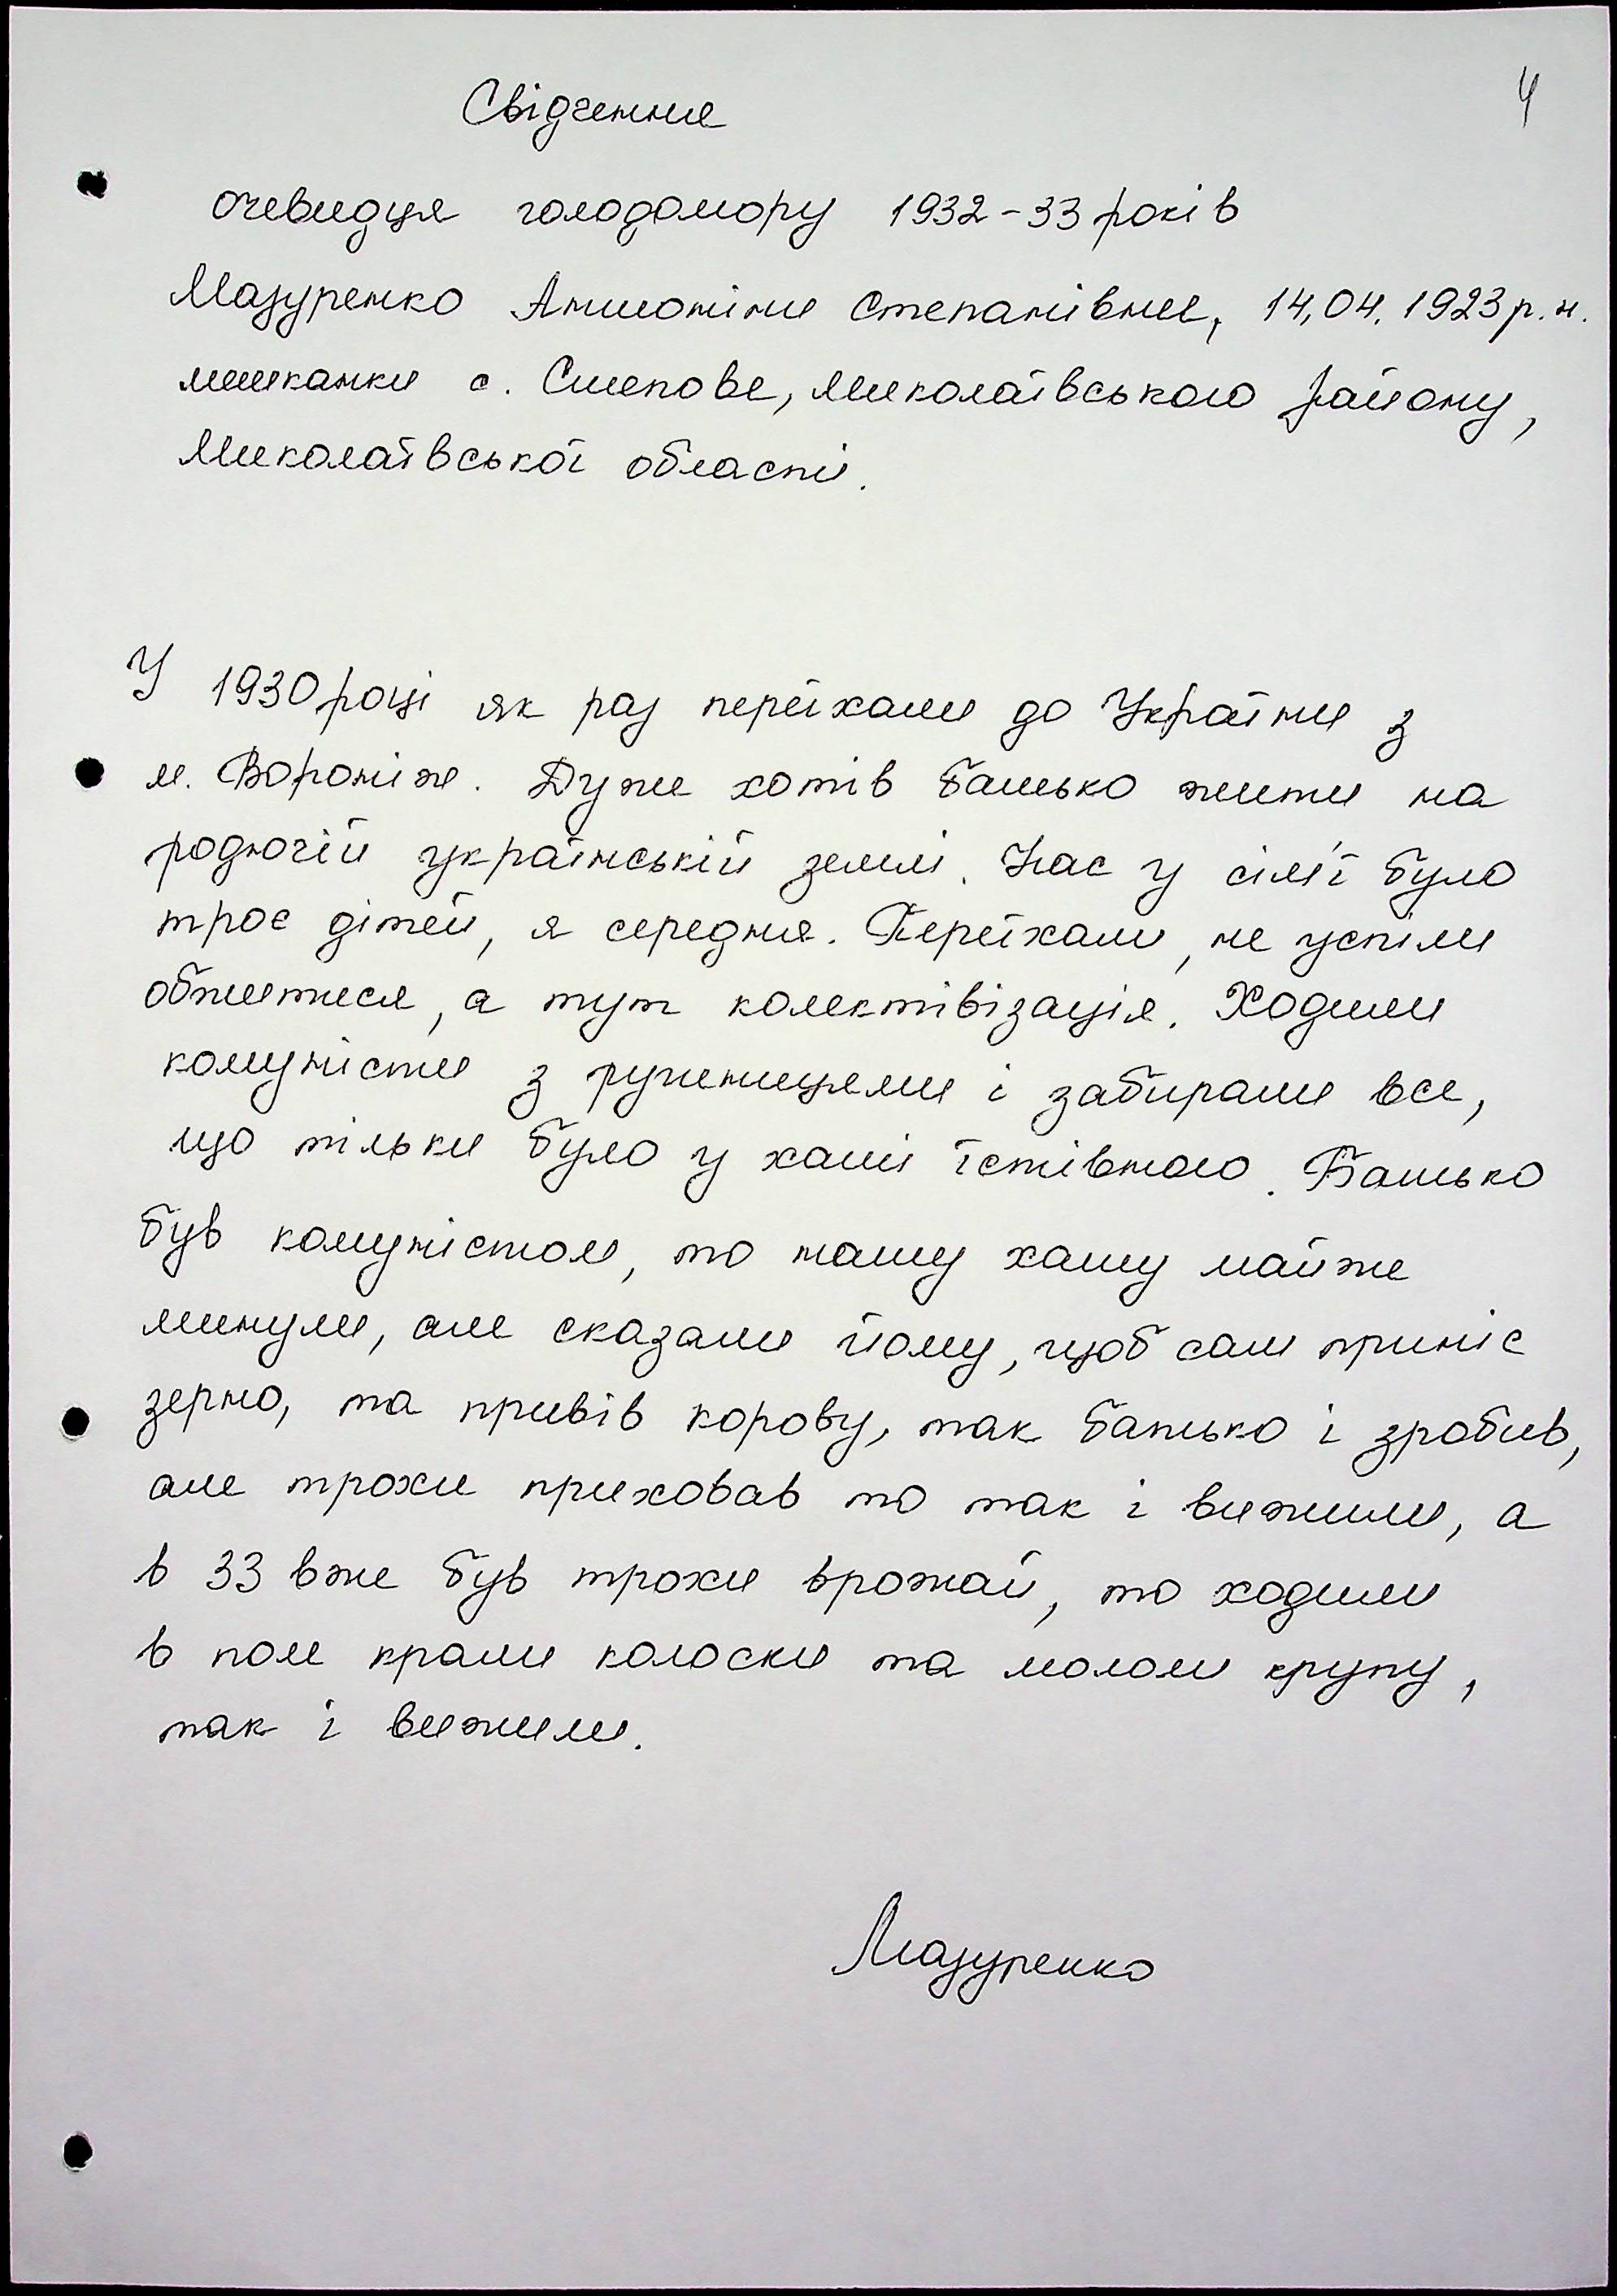 Свідчення
4
очевидця голодомору 1932-33 років
Мазуренко Антоніни Степанівни, 14.04.1923 р.н.
мешканки с. Степове, Миколаївського району,
Миколаївської області.
У 1930 році як раз переїхали до України з
м. Вороніж. Дуже хотів батько жити на
родючій українській землі. Нас у сім'ї було
троє дітей, я середня. Переїхали, не успіли
обжитися, а тут колективізація. Ходили
комуністи з рушницями і забирали все,
що тільки було у хаті їстівного. Батько
був комуністом, то нашу хату майже
минули, але сказали йому, щоб сам приніс
зерно, та привів корову, так батько і зробив,
але трохи приховав то так і вижили, а
в 33 вже був трохи врожай, то ходили
в поле крали колоски та мололи крупу,
так і вижили.
Мазуренко